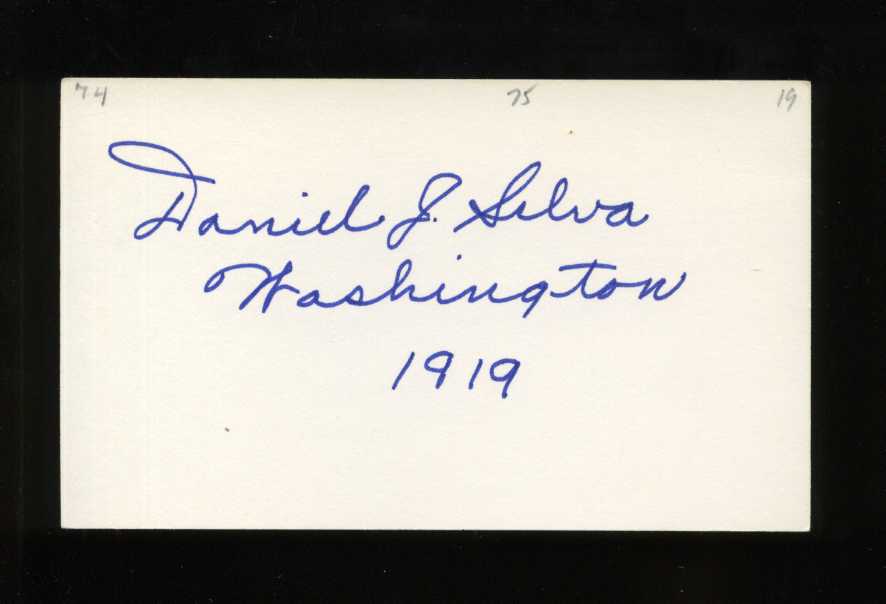 74 75 19
Daniel J. Silva
Washington
1919